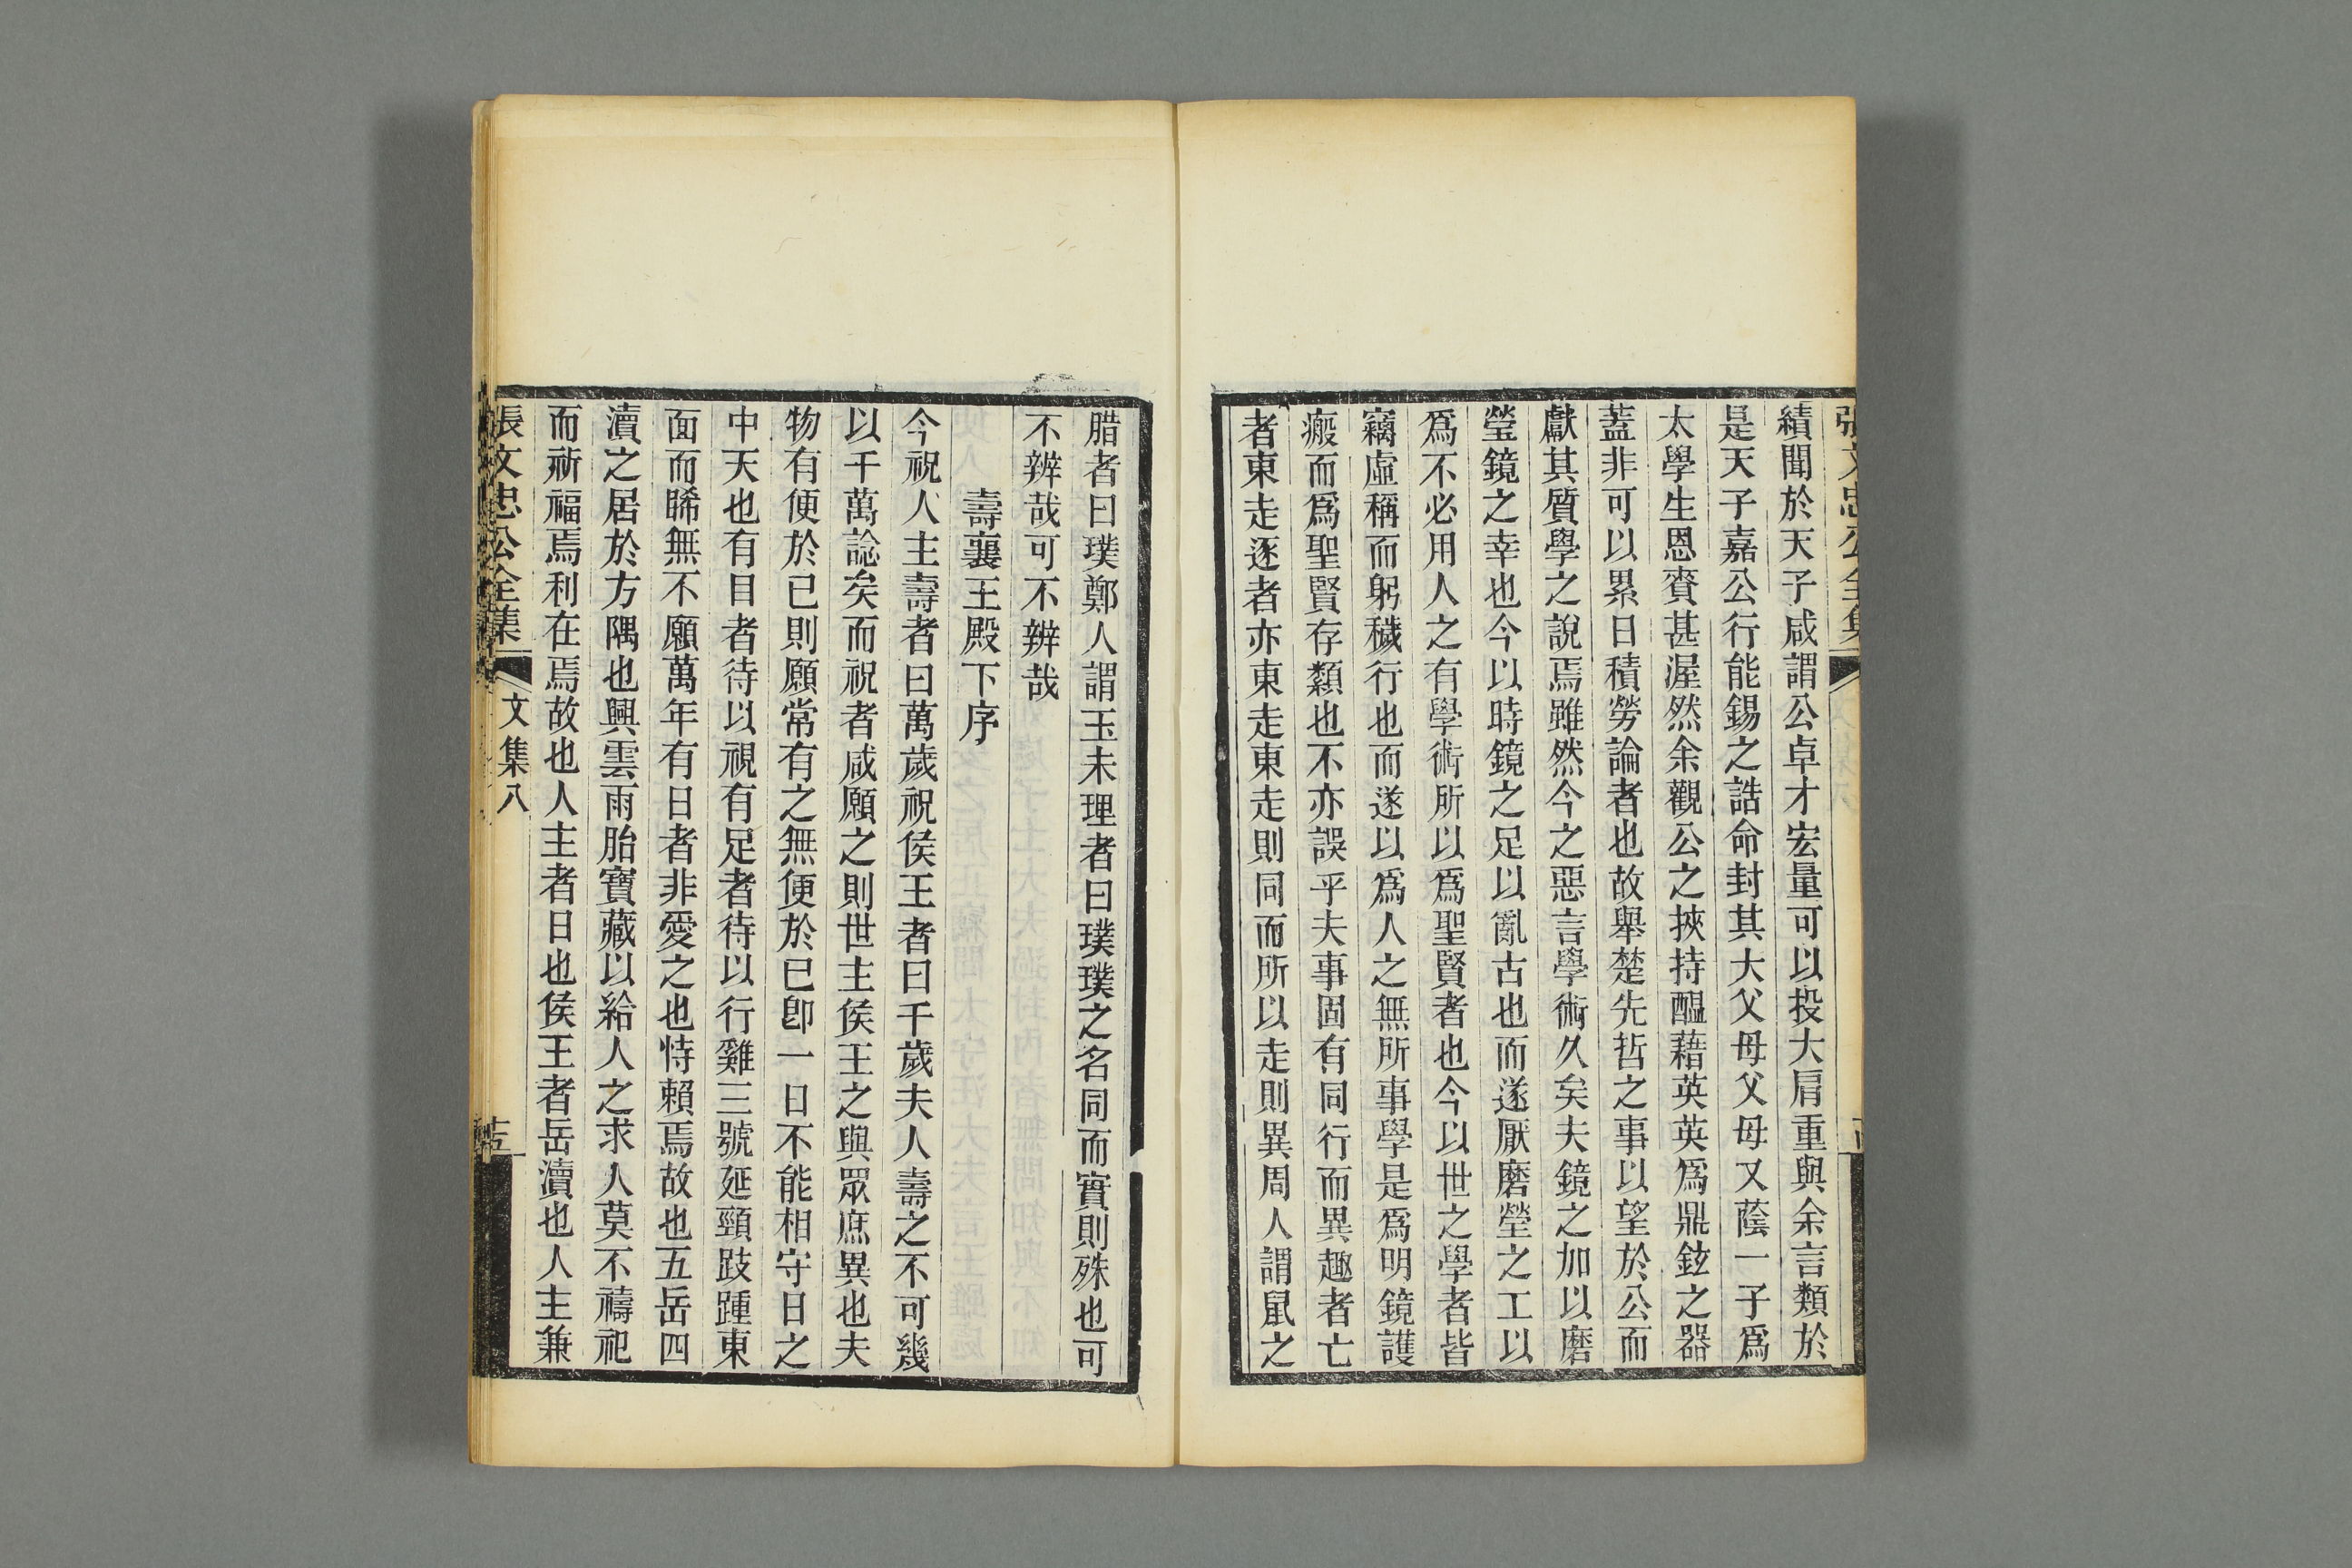 張文忠公全集
績聞於天子咸謂公卓才宏量可以投大肩重與余言類於
是天子嘉公行能錫之誥命封其大父母父母又蔭一子爲
太學生恩賚甚渥然余觀公之挾持醞藉英英爲鼎鉉之器
蓋非可以累日積勞論者也故舉楚先哲之事以望於公而
獻其質學之說焉雖然今之惡言學術久矣夫鏡之加以磨
瑩鏡之幸也今以時鏡之足以亂古也而遂厭磨瑩之工以
爲不必用人之有學術所以爲聖賢者也今以世之學者皆
竊虛稱而躬穢行也而遂以爲人之無所事學是爲明鏡護
瘢而爲聖賢存纇也不亦誤乎夫事固有同行而異趣者亡
者東走逐者亦東走東走則同而所以走則異周人謂鼠之
腊者曰璞鄭人謂玉未理者曰璞璞之名同而實則殊也可
不辨哉可不辨哉
壽襄王殿下序
今祝人主壽者曰萬歲祝侯王者曰千歲夫人壽之不可幾
以千萬諗矣而祝者咸願之則世主侯王之與眾庶異也夫
物有便於已則願常有之無便於已卽一日不能相守日之
中天也有目者待以視有足者待以行雞三號延頸跂踵東
面而睎無不願萬年有日者非愛之也恃賴焉故也五岳四
瀆之居於方隅也興雲雨胎寶藏以給人之求人莫不禱祀
而祈福焉利在焉故也人主者日也侯王者岳瀆也人主兼
張文忠公全集
文集八